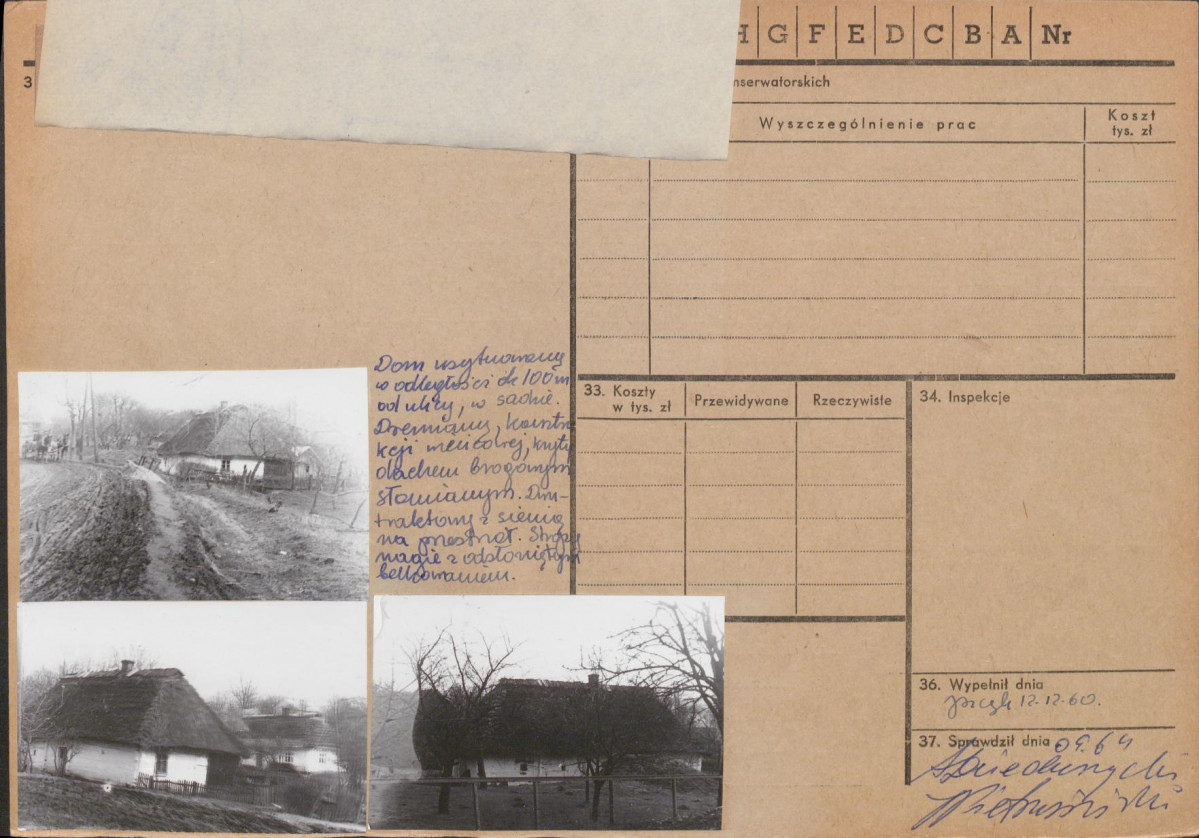 H G F E D C B A Nr
3
nserwatorskich
Wyszczególnienie prac
Koszt
tys. zł
Dom usytuowany
w odległości ok 100 m
od ulicy, w sadzie.
Drewniany, konstru
kcji wieńcowej, kryty
dachem brogowym
słomianym. Dwu-
traktowy z sienią
na przestrzał. Stropy
nagie z odsłoniętym
belkowaniem.
33. Koszty
w tys. zł
Przewidywane
Rzeczywiste
34. Inspekcje
36. Wypełnił dnia
12.12.60.
37. Sprawdził dnia